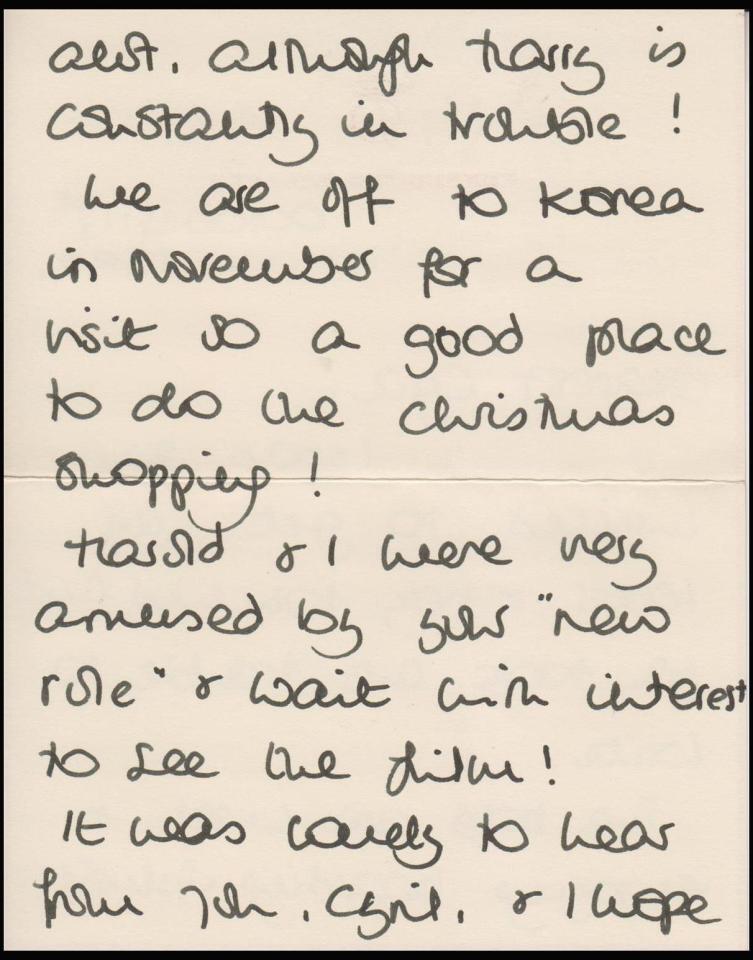 alot, although Harry is
constantly in trouble!
We are off to Korea
in November for a
visit so a good place
to do the Christmas
shopping!
Harold & I were very
amused by your "new
role" & wait with interest
to see the film!
It was lovely to hear
from you, Cyril, & I hope